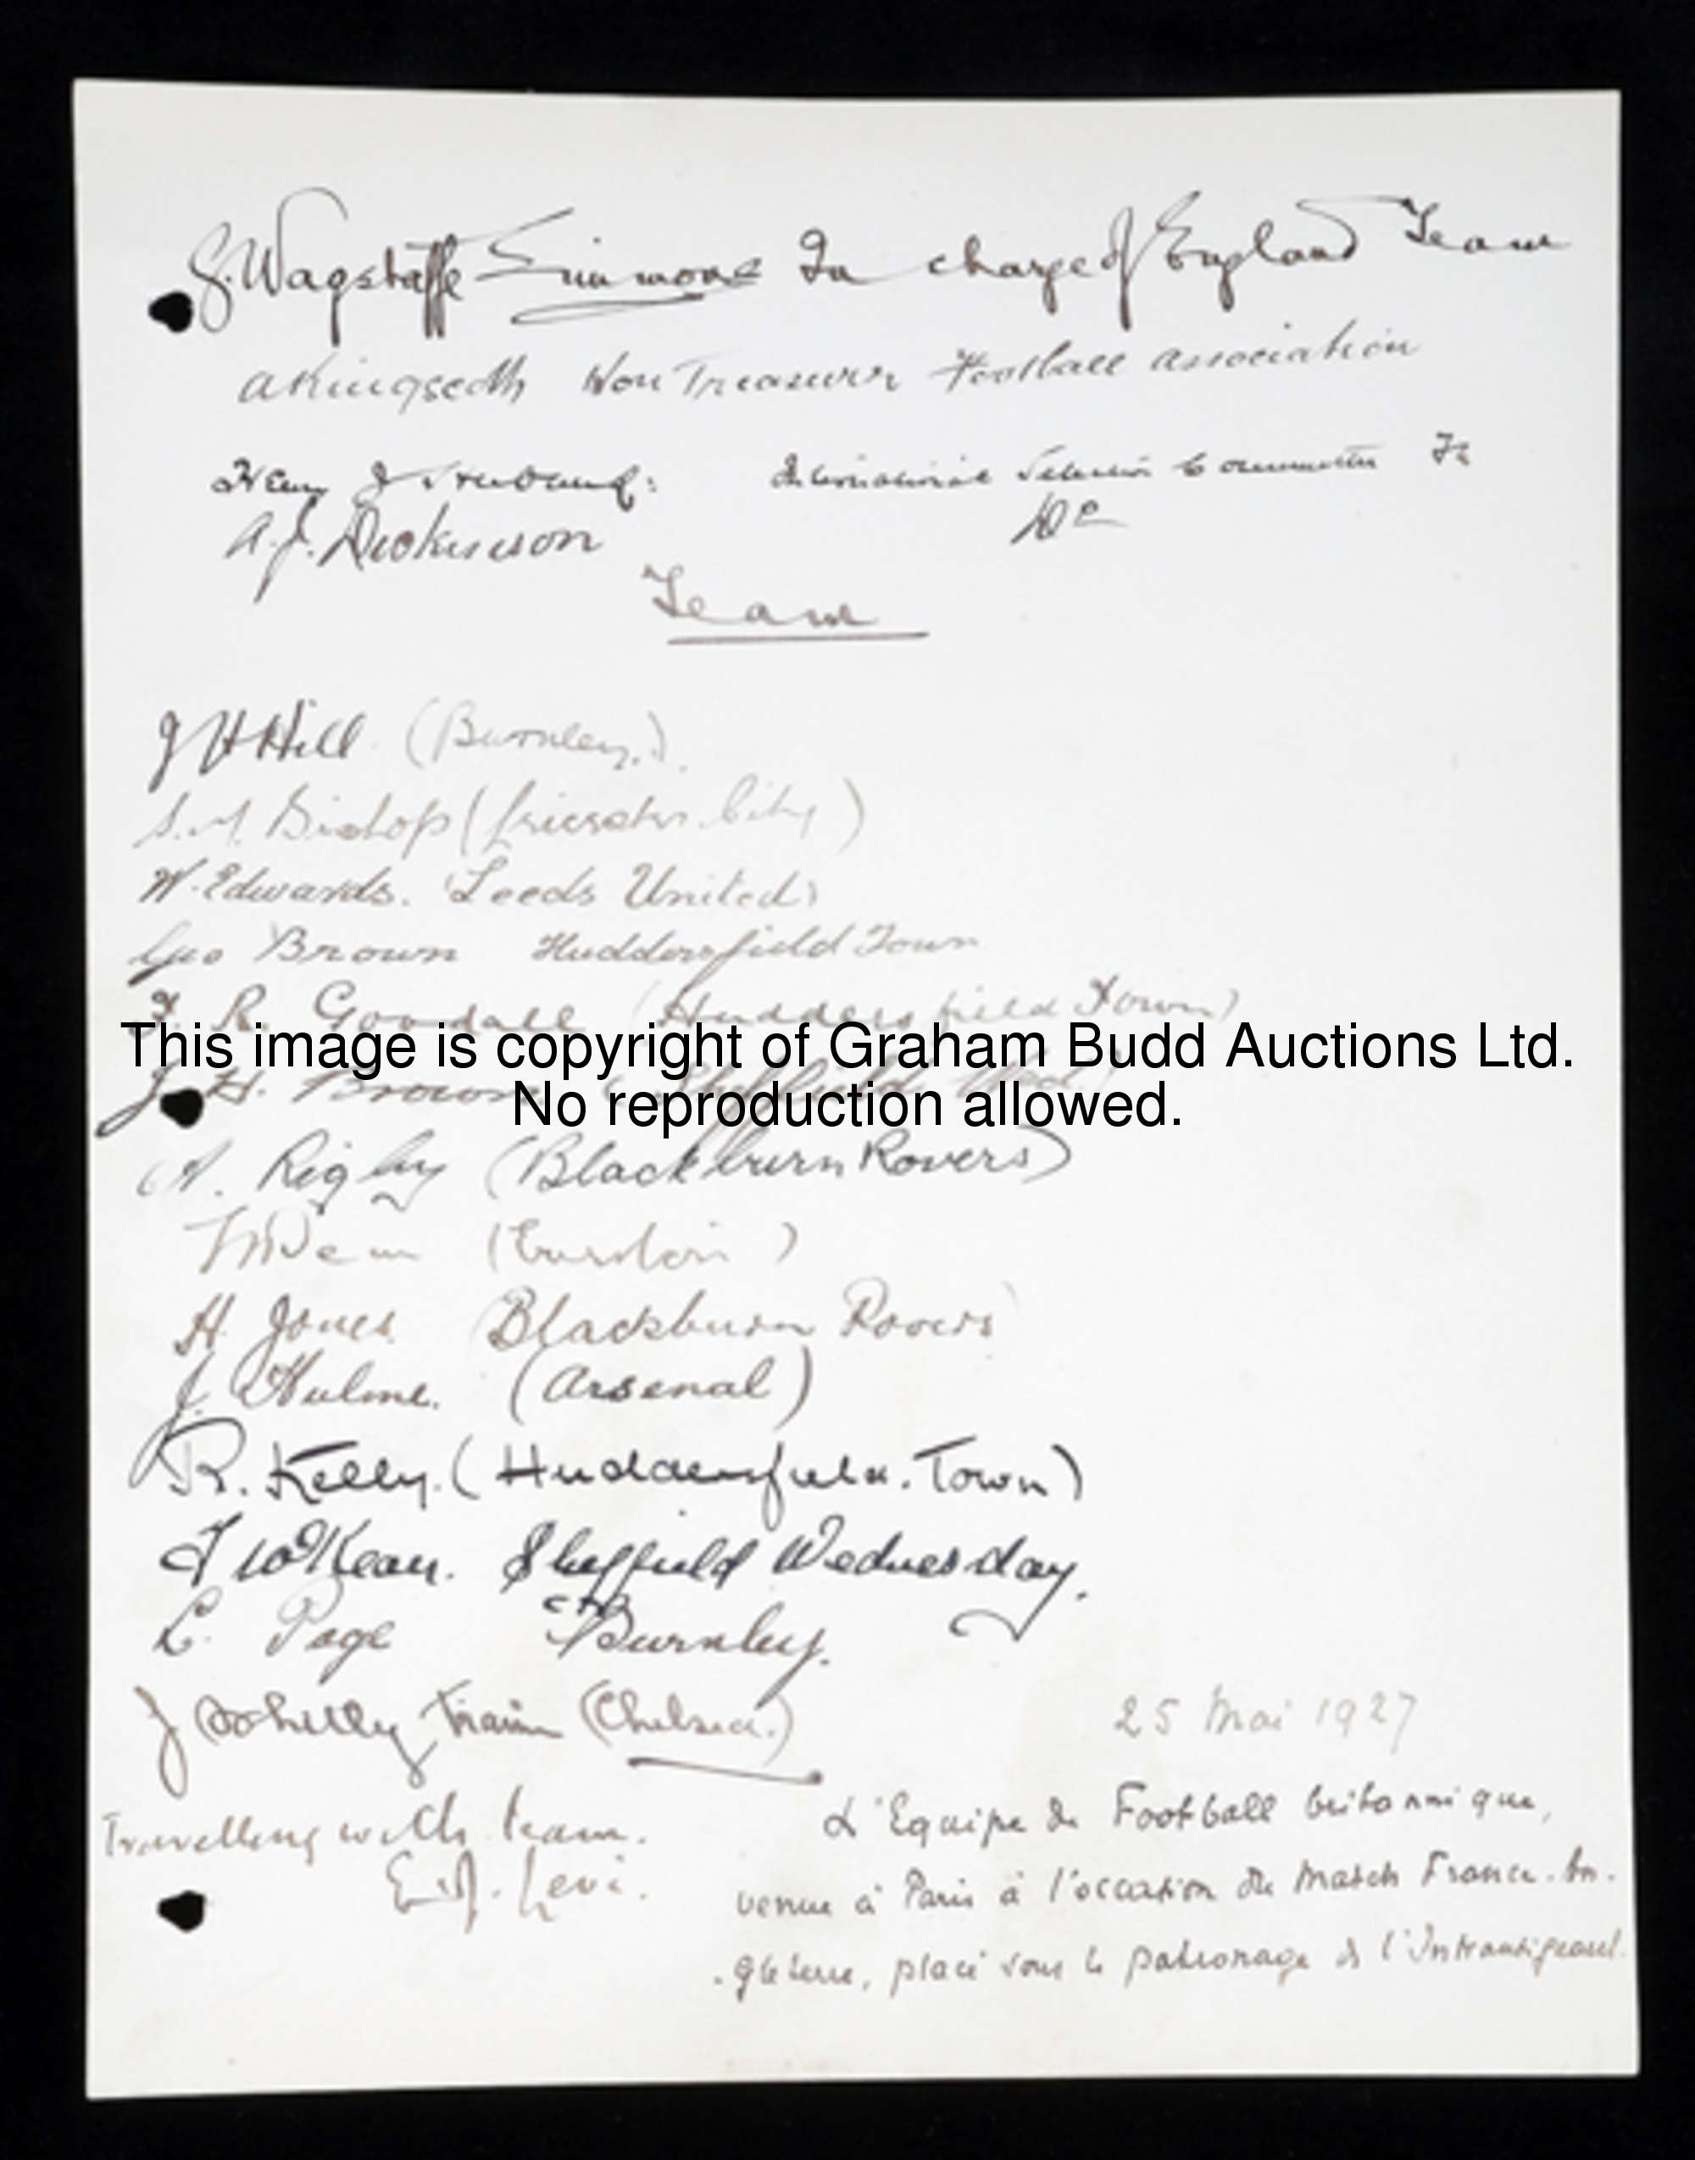 G. Wagstaffe Simmons In charge of England Team
A Kingscott Hon Treasurer Football Association
Henry J International Selection Committee FA
A.J. Dickinson do
Team
J H Hill (Burnley.)
S.M. Bishop (Leicester City)
W. Edwards. (Leeds United)
Geo Brown Huddersfield Town
F. R. Goodall (Huddersfield Town)
This image is copyright of Graham Budd Auctions Ltd.
J. H. Brown (Sheffield Wed.)
No reproduction allowed.
A. Rigby (Blackburn Rovers)
W Dean (Everton)
H. Jones Blackburn Rovers
J. Hulme. (Arsenal)
R. Kelly. (Huddersfield. Town)
T W Kean. Sheffield Wednesday.
L. Page Burnley.
J Whitley Trainer (Chelsea.)
25 Mai 1927
Travelling with team.
L'Equipe de Football britannique,
Levi.
venue à Paris à l'occasion du Match France-An-
-gleterre, placé sous le patronage de l'Intransigeant.